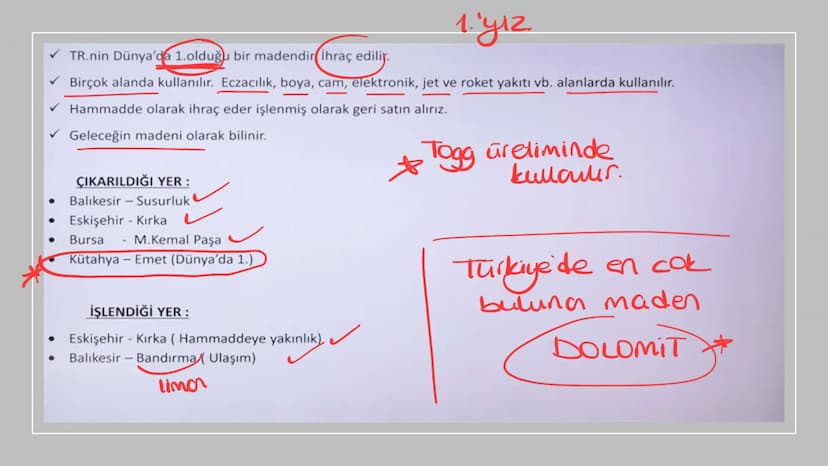 1.'yiz
✓ TR.nin Dünya'da 1.olduğu bir madendir. İhraç edilir.
✓ Birçok alanda kullanılır. Eczacılık, boya, cam, elektronik, jet ve roket yakıtı vb. alanlarda kullanılır.
✓ Hammadde olarak ihraç eder işlenmiş olarak geri satın alırız.
✓ Geleceğin madeni olarak bilinir.
Togg üretiminde
kullanılır.
ÇIKARILDIĞI YER :
• Balıkesir – Susurluk
• Eskişehir - Kırka
• Bursa - M.Kemal Paşa
• Kütahya – Emet (Dünya'da 1.)
Türkiye'de en çok
buluna maden
DOLOMİT
İŞLENDİĞİ YER :
• Eskişehir - Kırka ( Hammaddeye yakınlık)
• Balıkesir – Bandırma ( Ulaşım)
liman